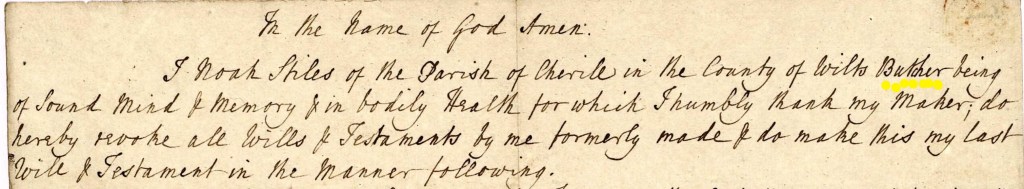 In the Name of God Amen.
I Noah Stiles of the Parish of Cherile in the County of Wilts Butcher being
of Sound Mind & Memory & in bodily Health for which I humbly thank my Maker; do
hereby revoke all Wills & Testaments by me formerly made & do make this my last
Will & Testament in the Manner following.